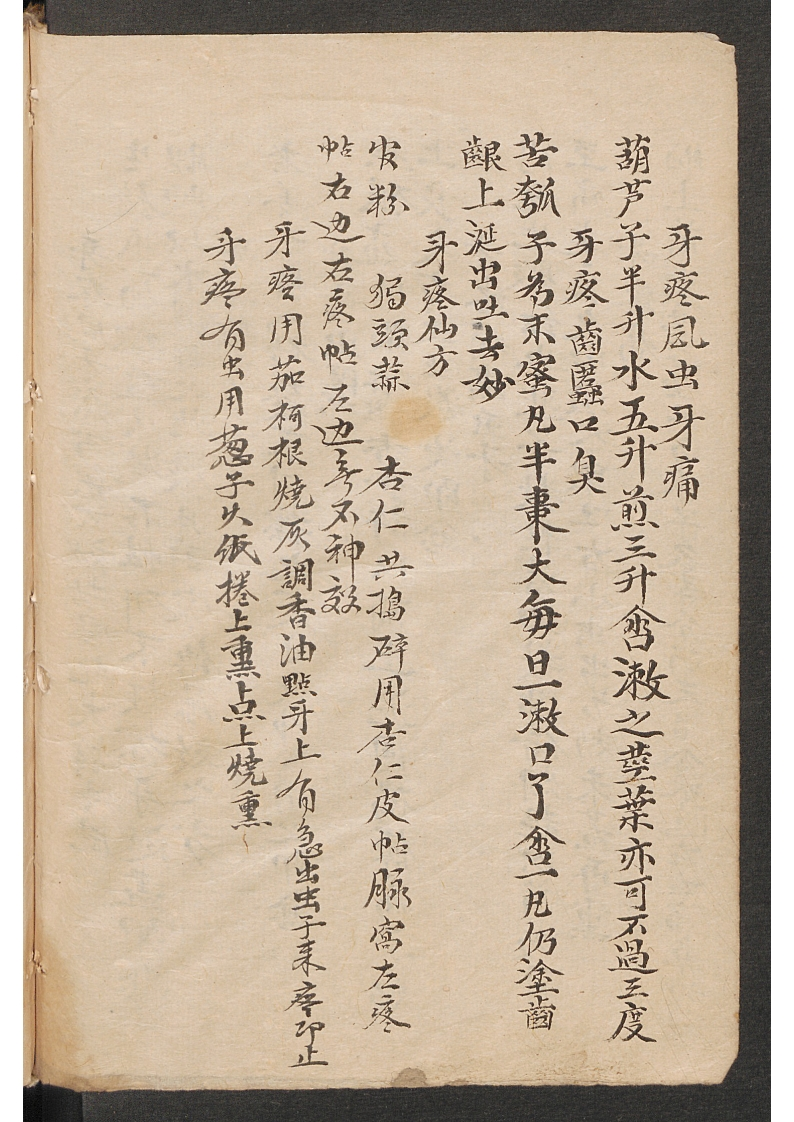 牙疼風虫牙痛
葫芦子半升水五升煎三升含漱之莖葉亦可不過三度
牙疼齒䘌口臭
苦瓠子為末蜜凡半棗大每日一漱口了含一凡仍塗齒
齦上涎出吐去妙
牙疼仙方
官粉 獨頭蒜 杏仁共搗碎用杏仁皮帖脉窩左疼
帖右边右疼帖左边無不神效
牙疼用茄柯根燒灰調香油點牙上有急出虫子来疼即止
牙疼有虫用葱子火纸捲上熏上点上燒熏